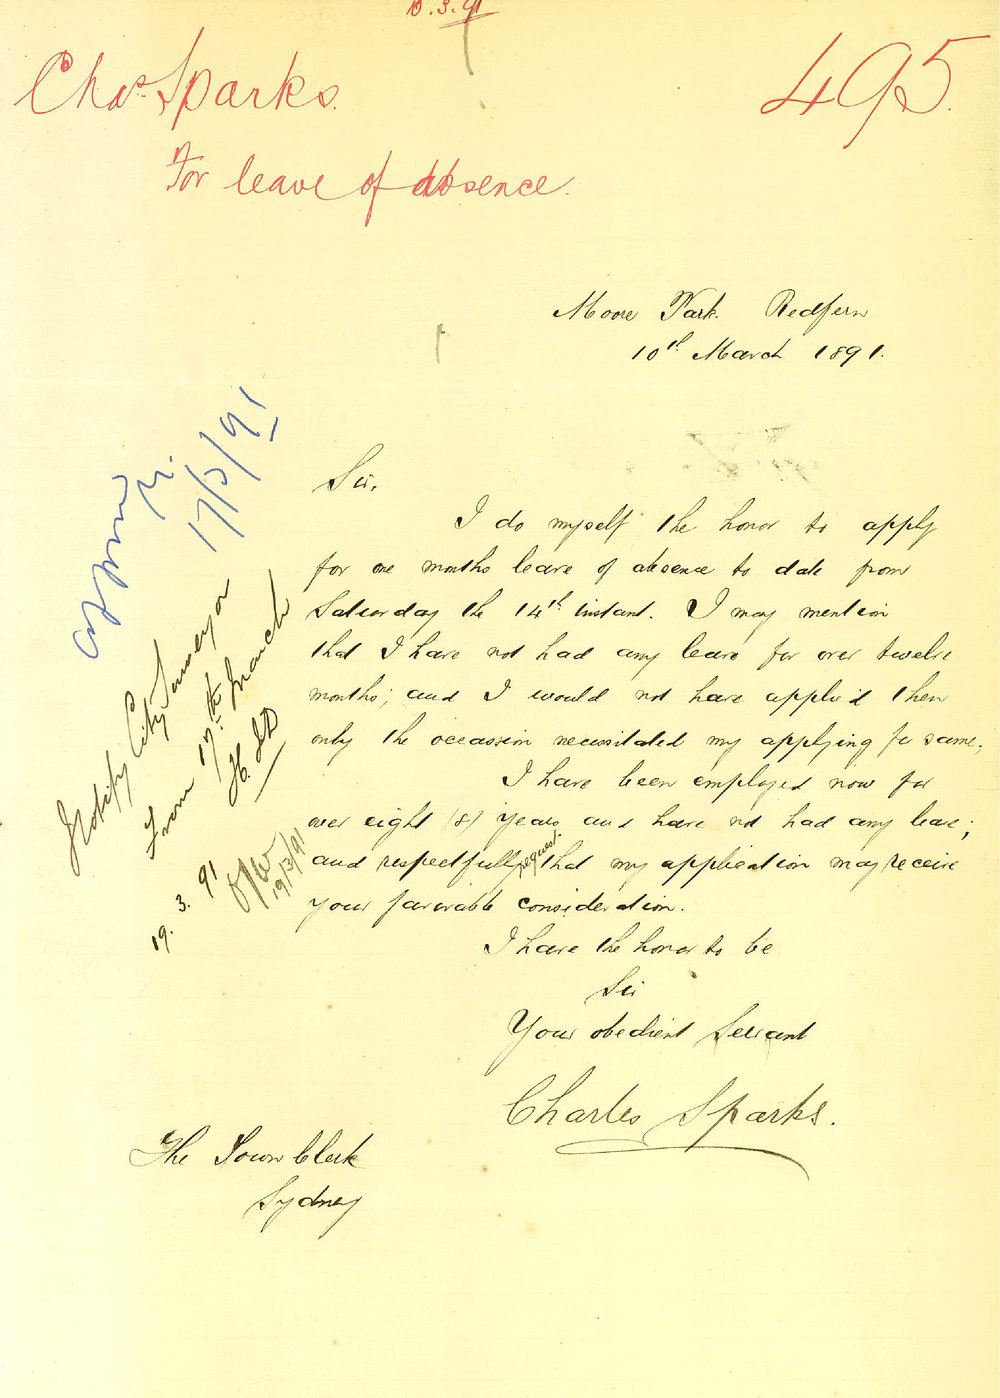 10.3.91
Chas. Sparks.
495.
For leave of absence.
Moore Park. Redfern
10th March 1891.
Sir,
I do myself the honor to apply
for one months leave of absence to date from
Saturday the 14th instant. I may mention
that I have not had any leave for over twelve
months; and I would not have applied then
only the occassion necessitated my applying for same;
I have been employed now for
over eight (8) years and have not had any leave;
and respectfully request that my application may receive
your favorable consideration.
I have the honor to be
Sir
Your obedient Servant
Charles Sparks.
The Town Clerk
Sydney
17/3/91
Notify City Surveyor
From 17.th March
19.3.91
19/3/91